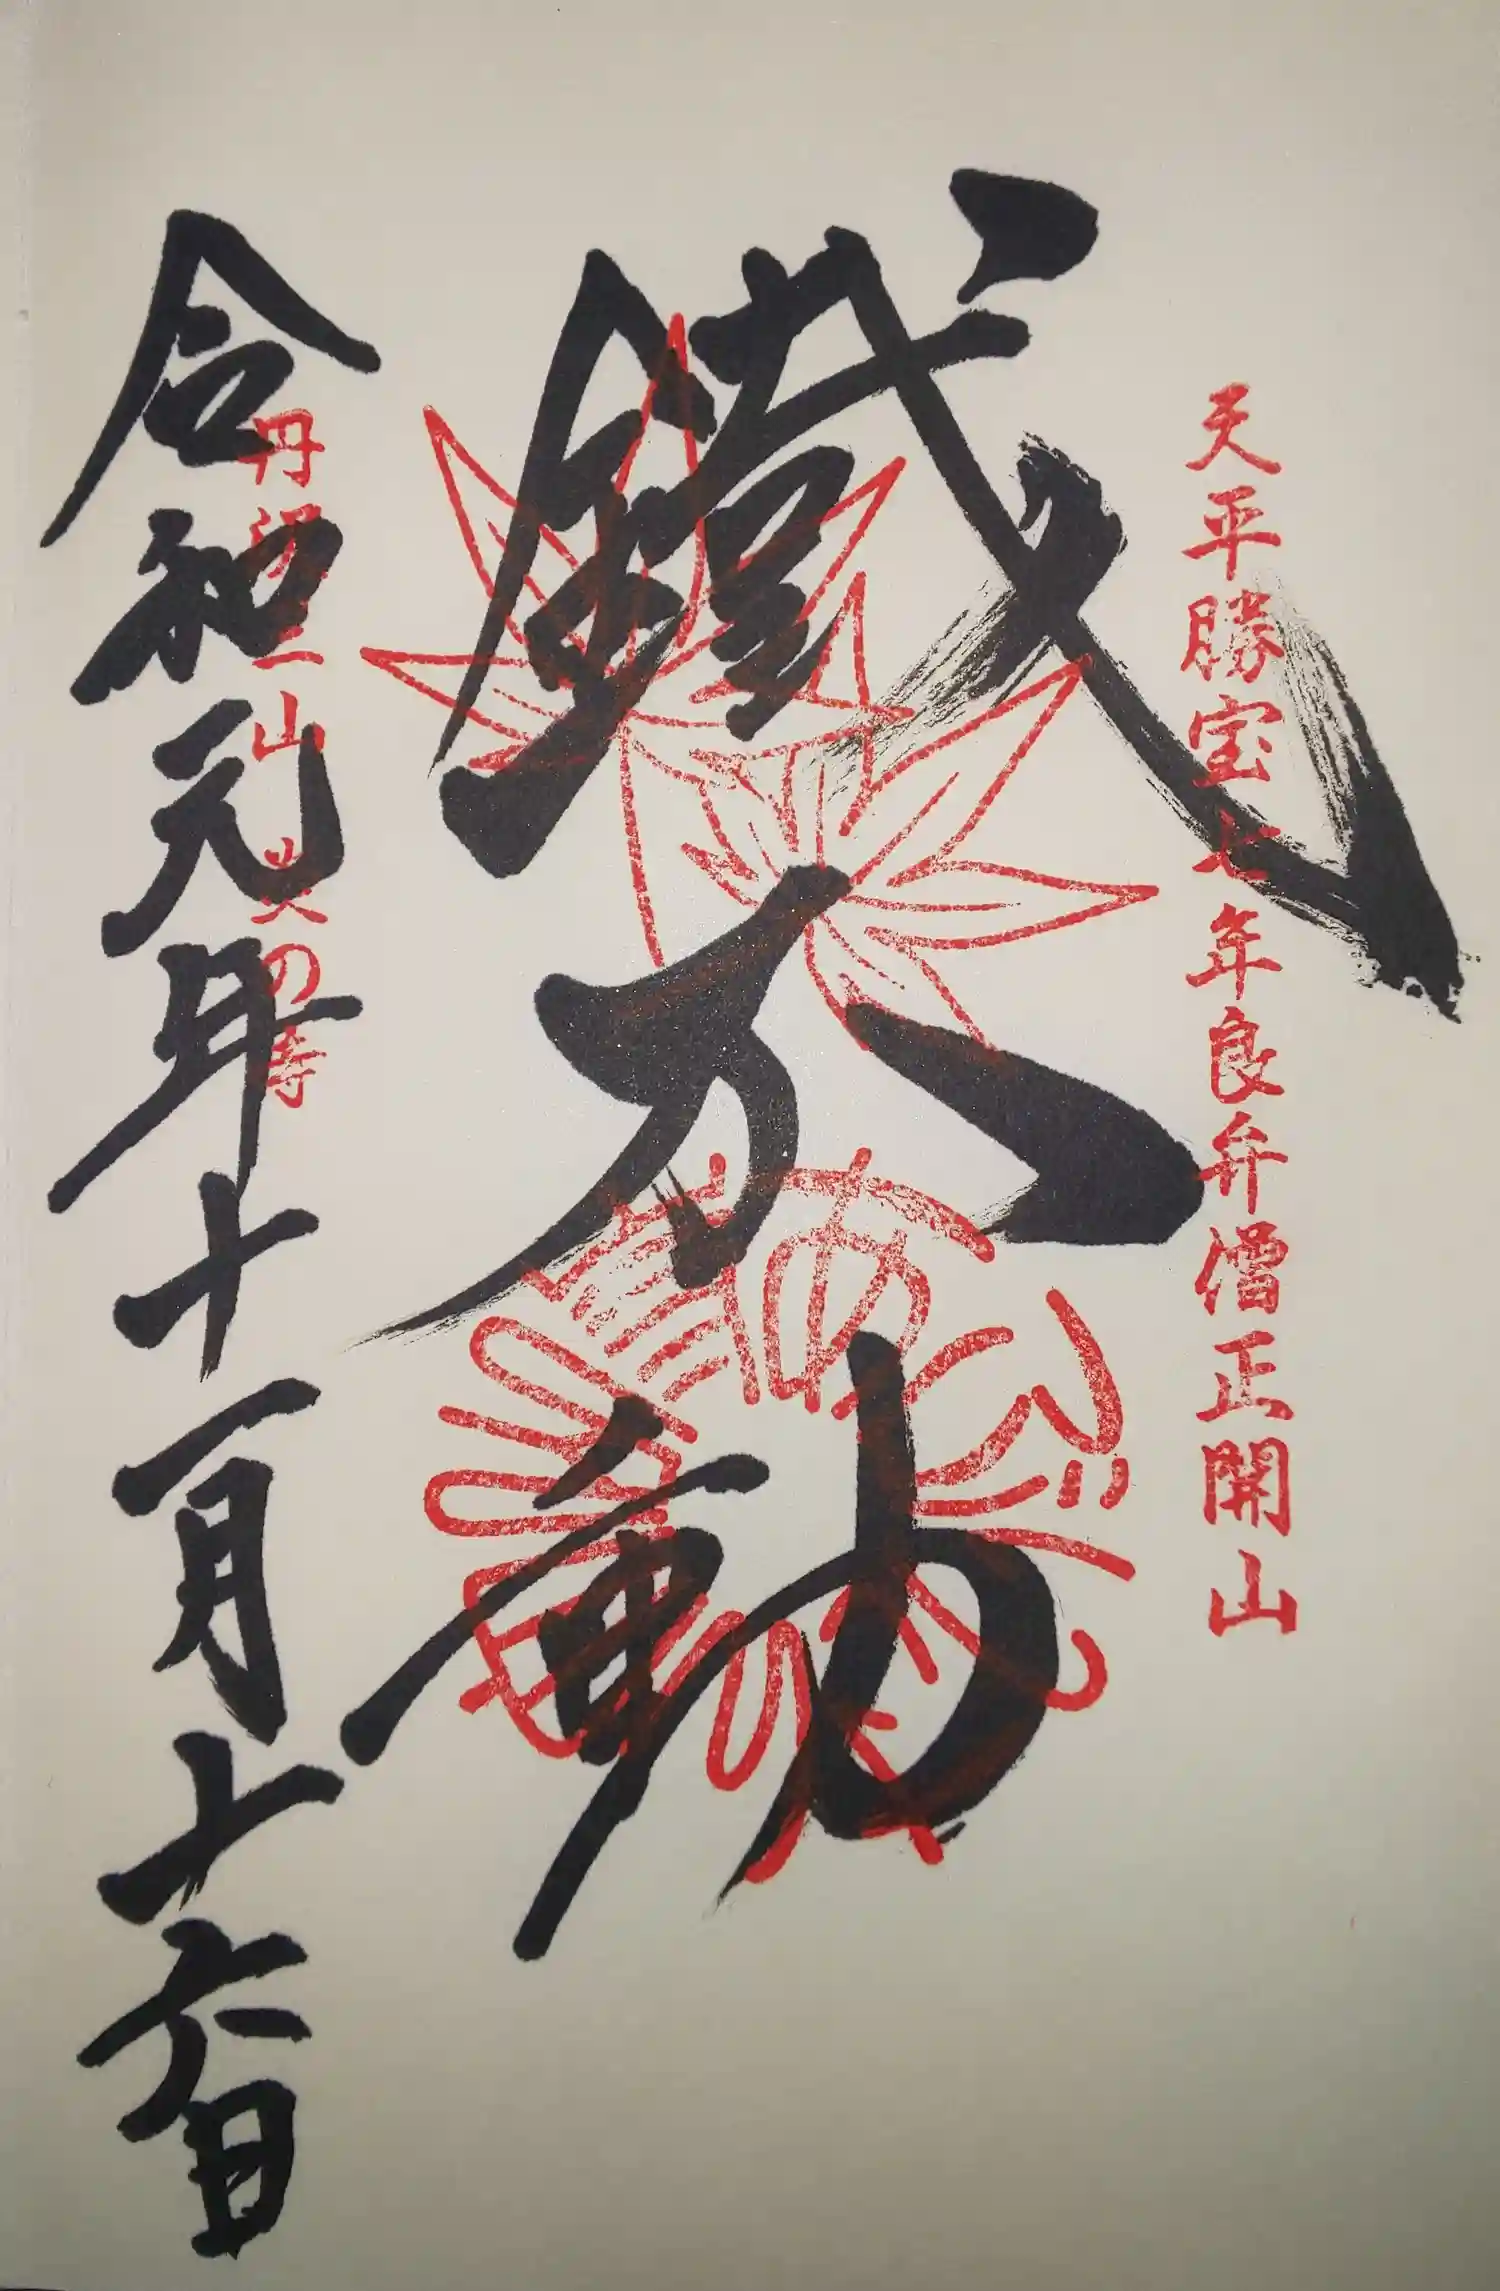 天平勝宝七年良弁僧正開山
鐵不動
丹沢 山 の寺
令和元年十一月十六日